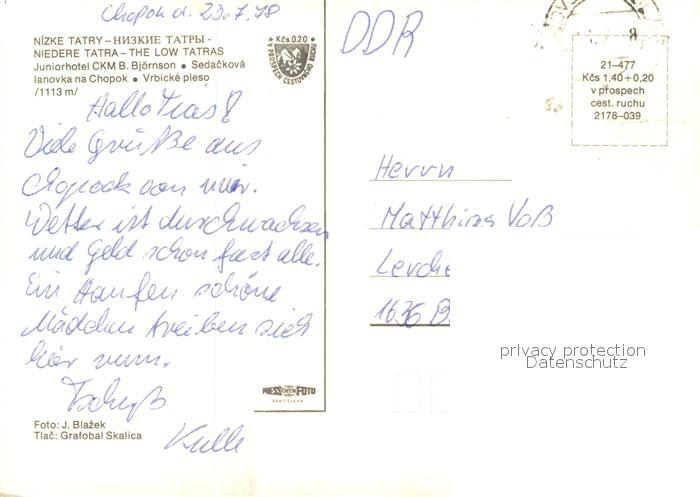 Chopok d. 23.7.78
NÍZKE TATRY – НИЗКИЕ ТАТРЫ -
NIEDERE TATRA – THE LOW TATRAS
Juniorhotel CKM B. Björnson • Sedačková
lanovka na Chopok • Vrbické pleso
/1113 m/
Kčs 0.20
V PROSPECH CESTOVNÉHO RUCHU
Hallo
Viele Grüße aus
Chopock von mir.
Wetter ist durchwachsen
und Geld schon fast alle.
Ein Haufen schöne
Mädchen treiben sich
hier rum.
Tschüß
Kulle
Foto: J. Blažek
Tlač: Grafobal Skalica
PRESSFOTO
BRATISLAVA
DDR
21–477
Kčs 1,40 + 0,20
v prospech
cest. ruchu
2178–039
Herrn
Matthias Voß
Lerche
1636 B
privacy protection
Datenschutz